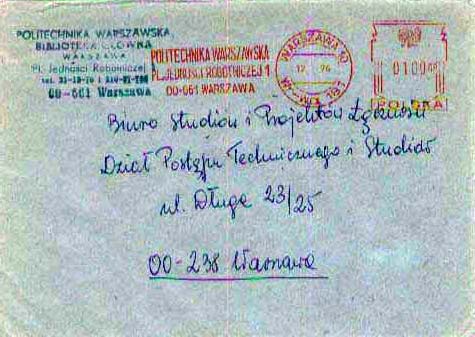 POLITECHNIKA WARSZAWSKA
BIBLIOTEKA GŁÓWNA
WARSZAWA
Pl. Jedności Robotniczej
00-661 Warszawa
POLITECHNIKA WARSZAWSKA
PL. JEDNOŚCI ROBOTNICZEJ 1
00-661 WARSZAWA
WARSZAWA 10
76
0100
POLSKA
Biuro Studiów i Projektów Łączności
Dział Postępu Technicznego i Studiów
ul. Długa 23/25
00-238 Warszawa